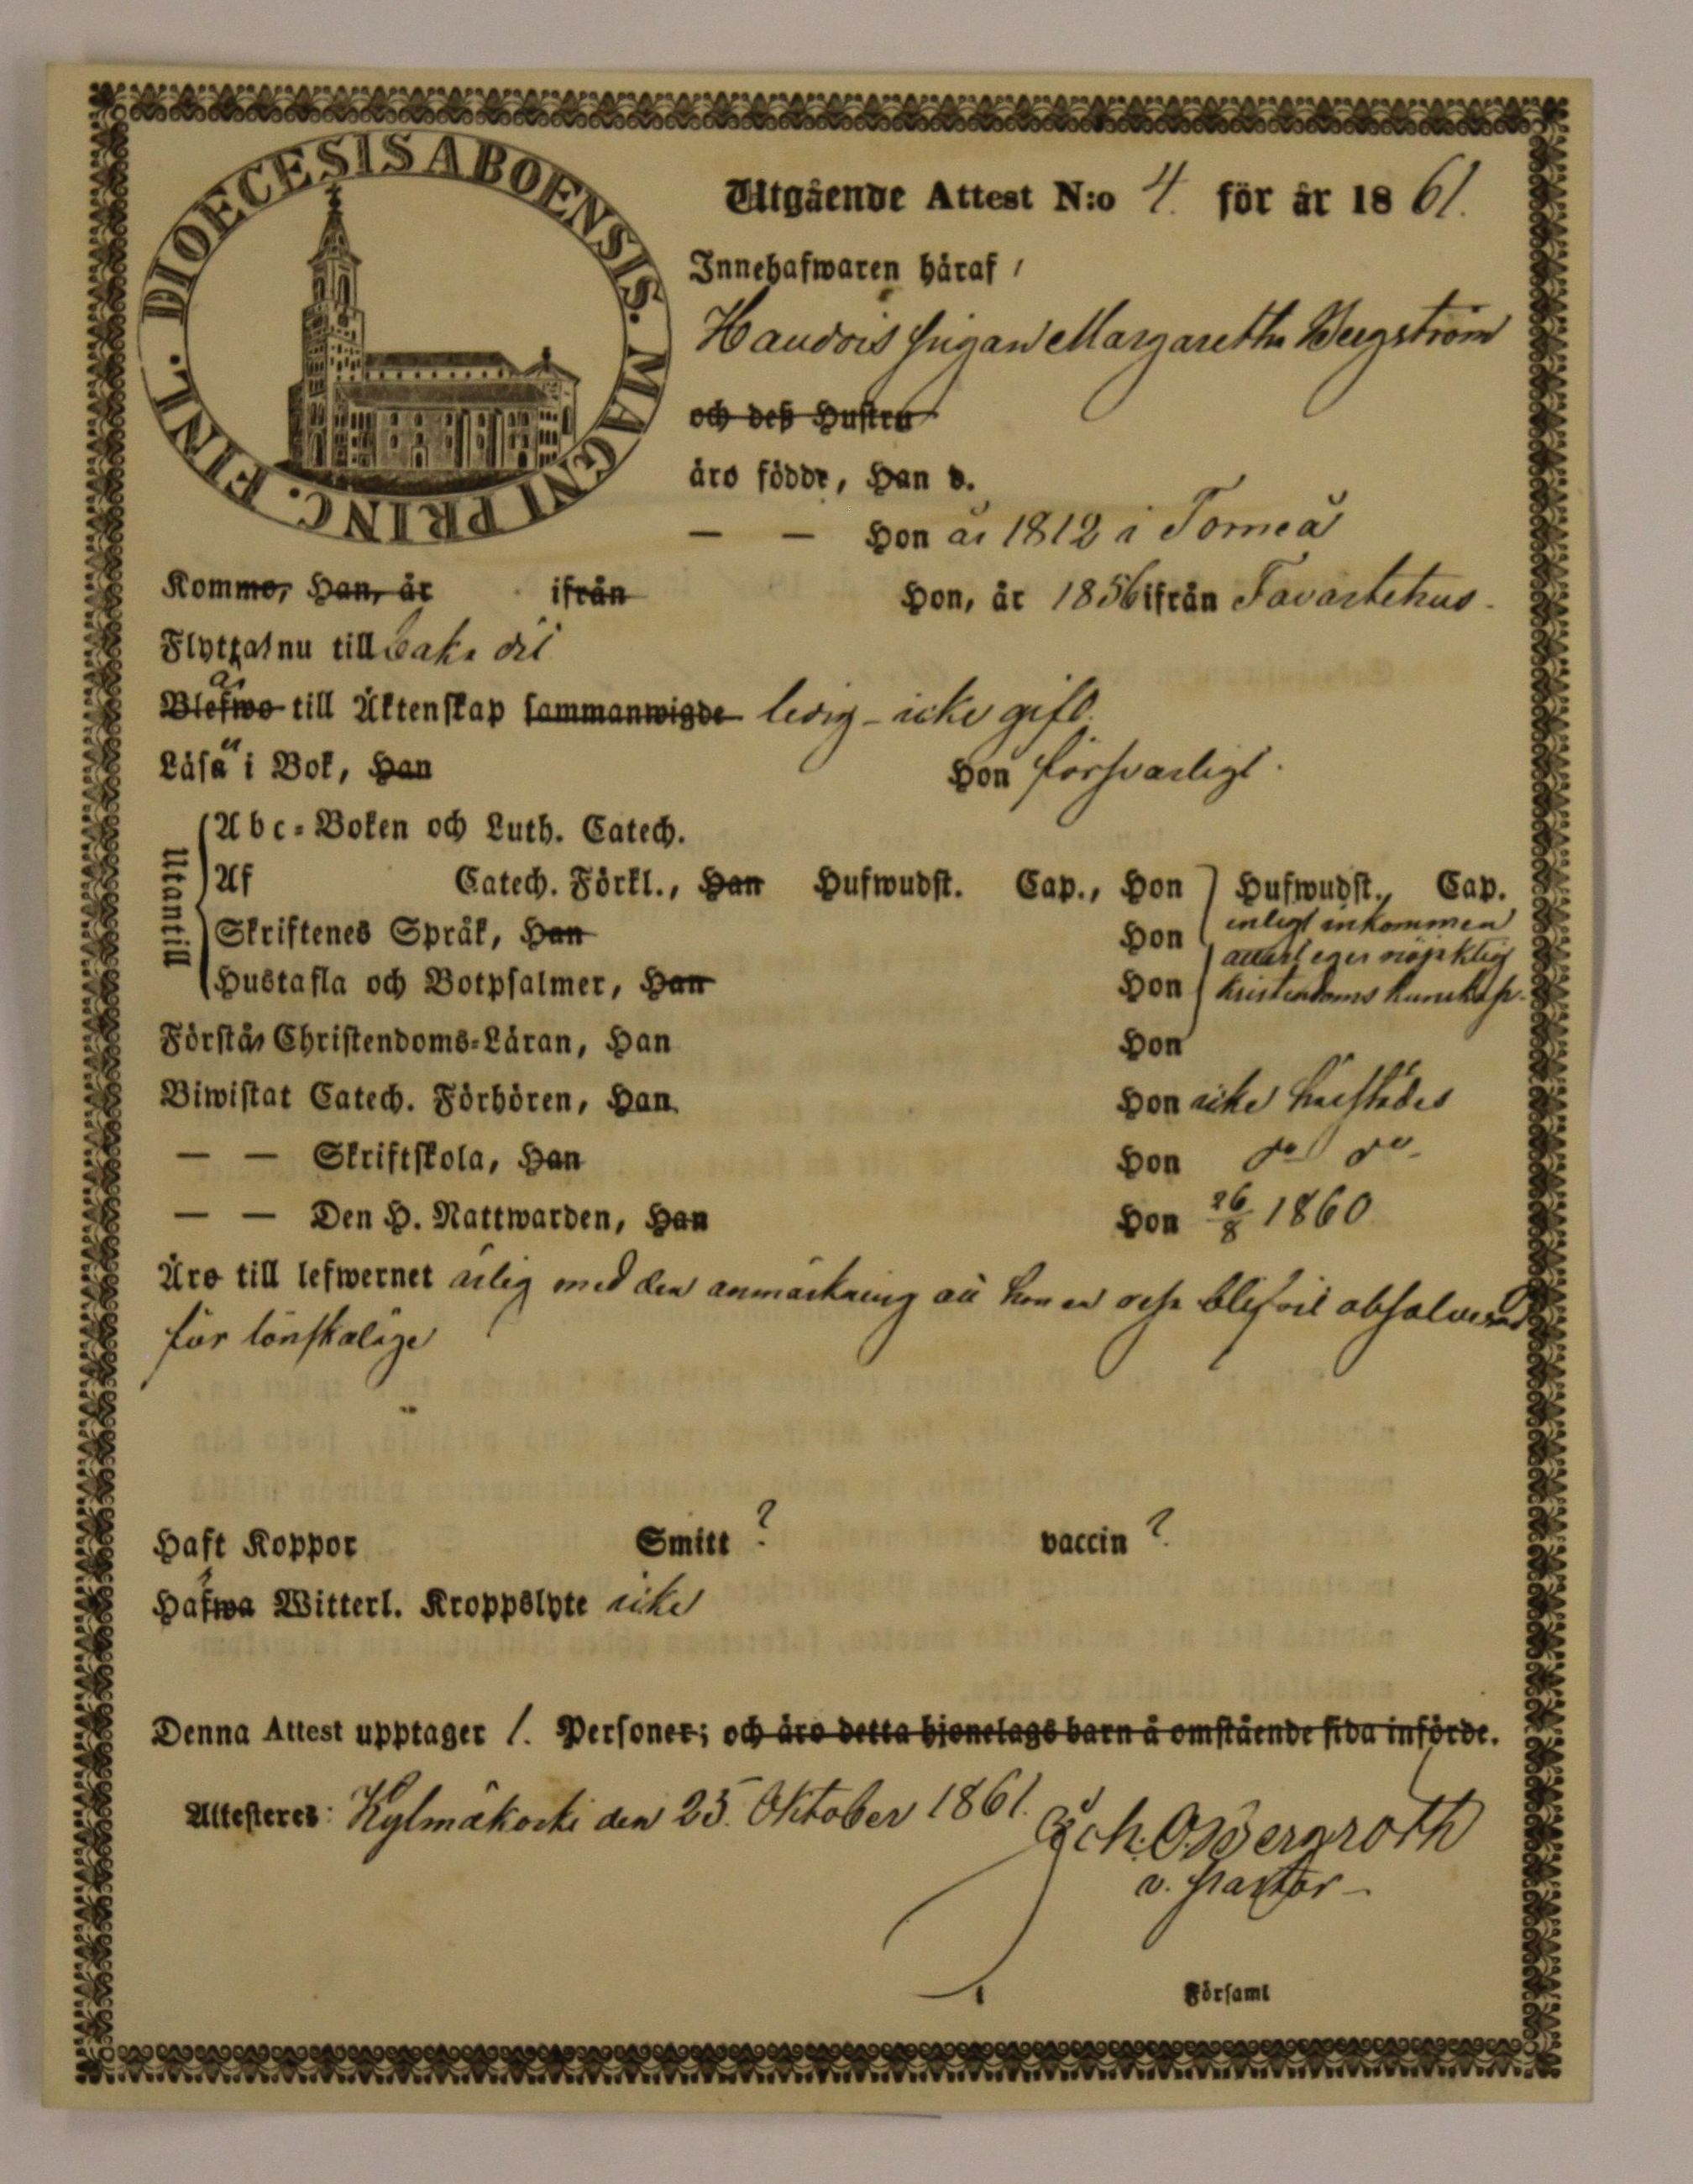 DIOECESIS ABOENSIS. MAGNI PRINC. FINL.
Utgående Attest N:o 4. för år 1861.
Innehafwaren häraf,
Handols pigan Margaretha Bergström
och deß Hustru
äro födde, Han d.
— — Hon år 1812 i Torneå
Kommo, Han, år ifrån Hon, år 1856 ifrån Tavastehus.
Flyttar nu tillbaka dit
Blefwo är till Äktenskap sammanwigde ledig - icke gift.
Läsa i Bok, Han Hon försvarligt.
Utantill
Abc-Boken och Luth. Catech.
Af Catech. Förkl., Han Hufwudst. Cap., Hon Hufwudst., Cap.
Skriftenes Språk, Han Hon enligt inkommen
attest eger nöjaktig
Hustafla och Botpsalmer, Han Hon kristendoms kunskap.
Förstår Christendoms-Läran, Han Hon
Biwistat Catech. Förhören, Han Hon icke härstädes
— — Skriftskola, Han Hon do do
— — Den H. Nattwarden, Han Hon 26/8 1860
Äro till lefwernet ärlig med den anmärkning att hon en resa blifvit absolverad
för lönskaläge
Haft Koppor Smitt ? vaccin ?
Hafwa Witterl. Kroppslyte icke
Denna Attest upptager 1. Personer; och äro detta hjonelags barn å omstående sida införde.
Attesteres: Kylmäkoski den 25. Oktober 1861.
Joh. O. Bergroth
v. pastor
Församl